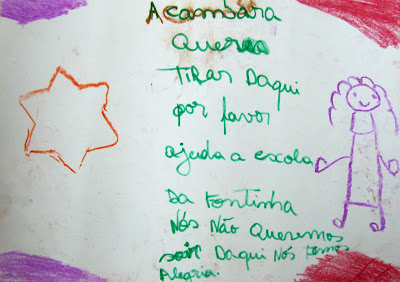 Acambara
Querea
Tirar Daqui
por favor
ajuda a escola
Da Fontinha
Nós Não Queremos
sair Daqui Nós Temos
Alegria.